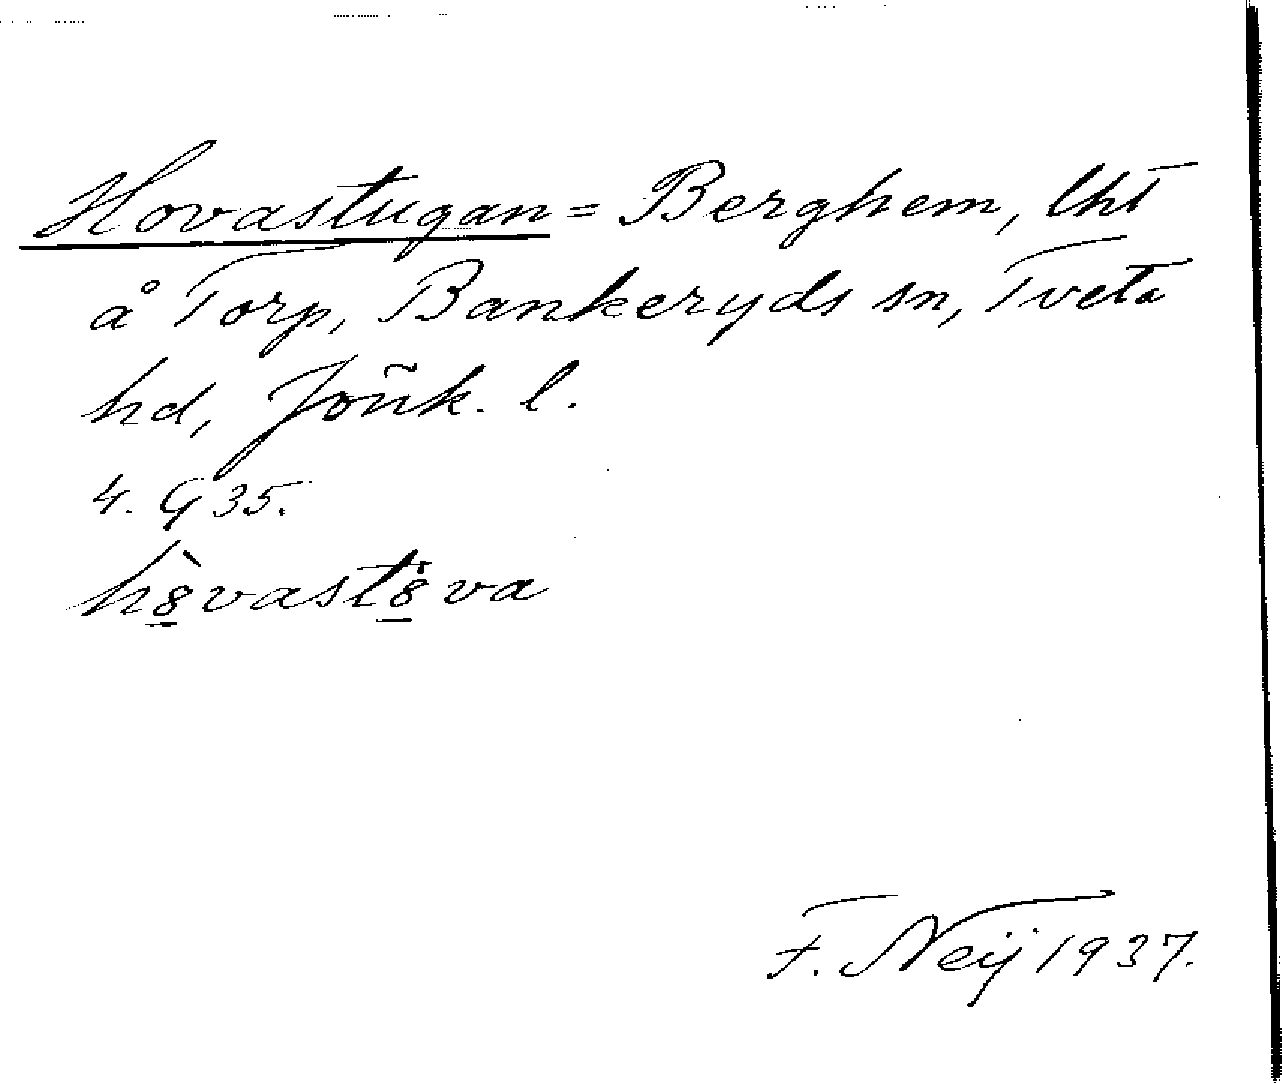 Hovastugan = Berghem, lht
å Torp, Bankeryds sn, Tveta
hd, Jöñk. l.
4. G 35.
hòvastöva
F. Neij 1937.